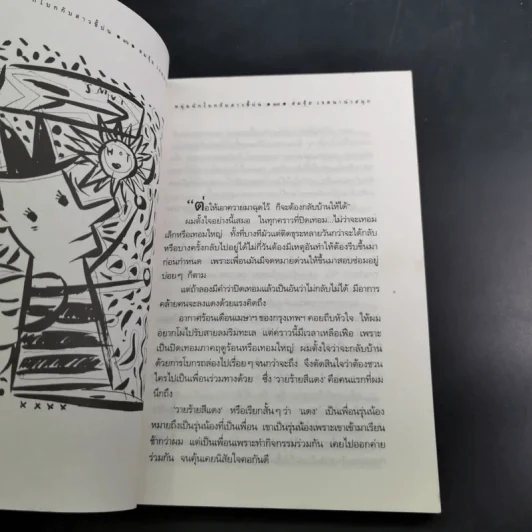 หนุ่มนักโบกกับสาวขี้บ่น
SMUI
หนุ่มนักโบกกับสาวขี้บ่น
"ต่อให้เอาควายมาฉุดไว้ ก็จะต้องกลับบ้านให้ได้"
ผมตั้งใจอย่างนี้เสมอ ในทุกคราวที่ปิดเทอม ไม่ว่าจะเทอม
เล็กหรือเทอมใหญ่ ทั้งที่บางทีมัวแต่ติดธุระหลายวันกว่าจะได้กลับ
หรือบางครั้งกลับไปอยู่ได้ไม่กี่วันต้องมีเหตุอันทำให้ต้องรีบขึ้นมา
ก่อนกำหนด เพราะเพื่อนมันมีจดหมายด่วนให้ขึ้นมาสอบซ่อมอยู่
บ่อยๆ ก็ตาม
แต่ถ้าลองมีคำว่าปิดเทอมแล้วเป็นอันว่าไม่กลับไม่ได้ มีอาการ
คล้ายคนจะลงแดงด้วยแรงคิดถึง
อากาศร้อนเดือนเมษาฯ ของกรุงเทพฯ คอยถีบหัวใจ ให้ผม
อยากโผไปรับสายลมริมทะเล แต่คราวนี้มีเวลาเหลือเฟือ เพราะ
เป็นปิดเทอมภาคฤดูร้อนหรือเทอมใหญ่ ผมตั้งใจว่าจะกลับบ้าน
ด้วยการโบกรถล่องไปเรื่อยๆ จนกว่าจะถึง จึงตัดสินใจว่าต้องชวน
ใครไปเป็นเพื่อนร่วมทางด้วย ซึ่ง 'วายร้ายสีแดง' คือคนแรกที่ผม
นึกถึง
'วายร้ายสีแดง' หรือเรียกสั้นๆ ว่า 'แดง' เป็นเพื่อนรุ่นน้อง
หมายถึงเป็นรุ่นน้องที่เป็นเพื่อน เขาเป็นรุ่นน้องเพราะเขาเข้ามาเรียน
ช้ากว่าผม แต่เป็นเพื่อนเพราะทำกิจกรรมร่วมกัน เคยไปออกค่าย
ร่วมกัน จนคุ้นเคยนิสัยใจคอกันดี